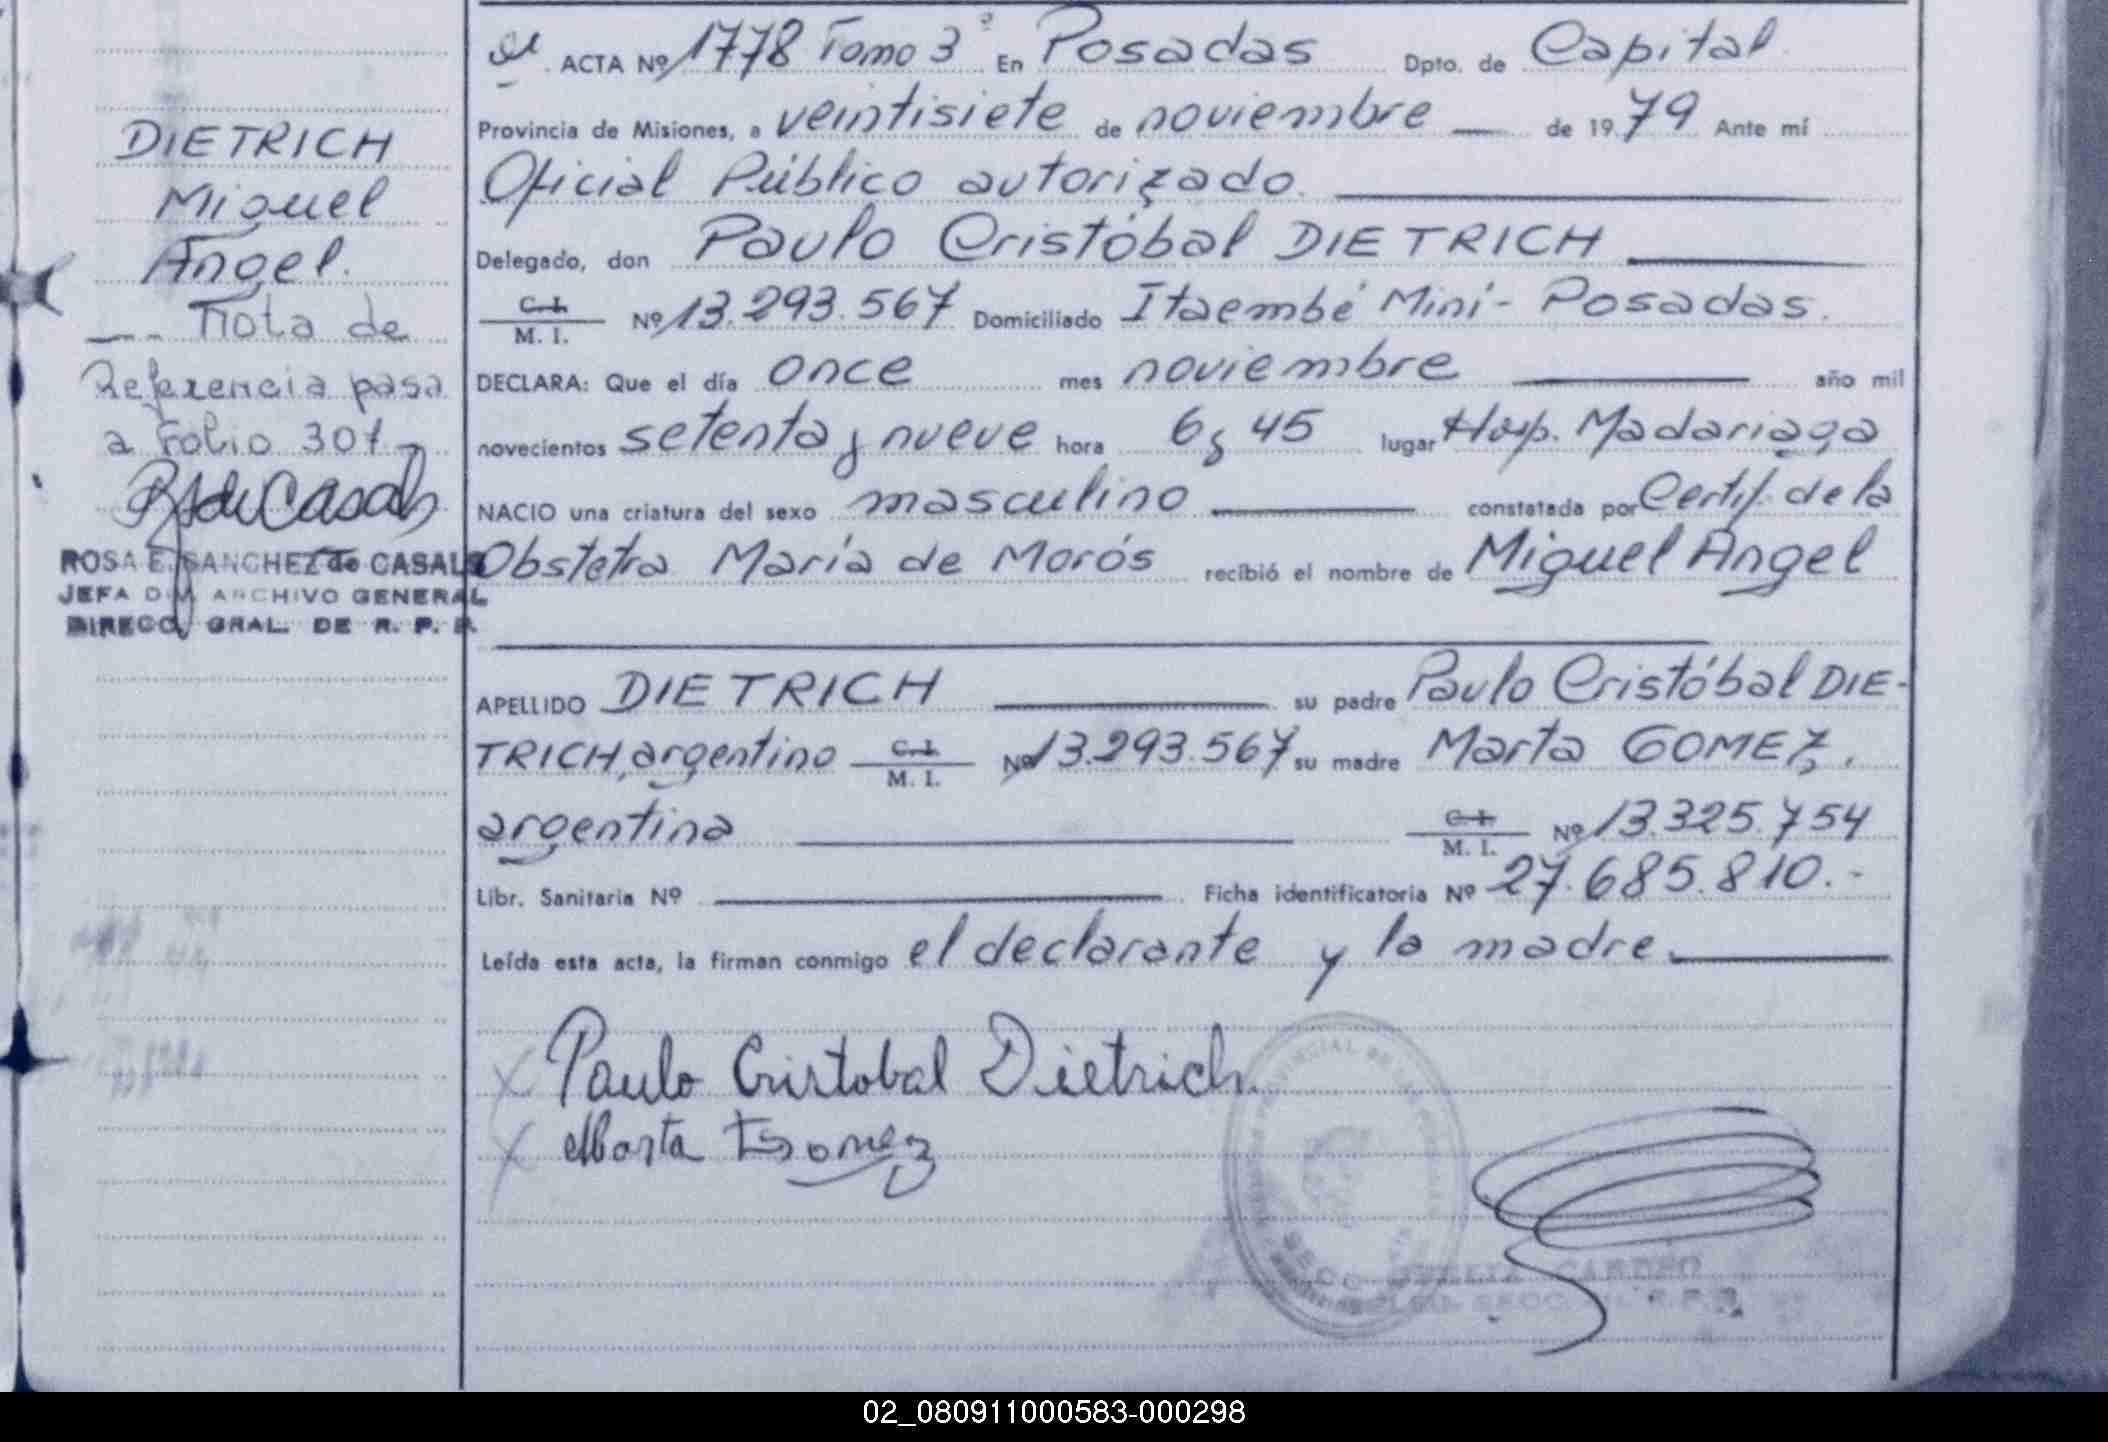 ACTA Nº 1778 Tomo 3º En Posadas Dpto. de Capital
Provincia de Misiones, a veintisiete de noviembre de 1979 Ante mí
Oficial Público autorizado.
Delegado, don Paulo Cristóbal DIETRICH
C. I. / M. I. Nº 13.293.567 Domiciliado Itaembé Miní - Posadas.
DECLARA: Que el día once mes noviembre año mil
novecientos setenta y nueve hora 6 y 45 lugar Hosp. Madariaga
NACIO una criatura del sexo masculino constatada por Certif. de la
Obstetra María de Morós recibió el nombre de Miguel Angel
APELLIDO DIETRICH su padre Paulo Cristóbal DIE-
TRICH, argentino C. I. / M. I. Nº 13.293.567 su madre Marta GOMEZ,
argentina C. I. / M. I. Nº 13.325.754
Libr. Sanitaria Nº Ficha identificatoria Nº 27.685.810.-
Leída esta acta, la firman conmigo el declarante y la madre.
Paulo Cristobal Dietrich
Marta Gomez
DIETRICH
Miguel
Angel.
Nota de
Referencia pasa
a Folio 307
ROSA E. SANCHEZ de CASALS
JEFA DIV. ARCHIVO GENERAL
DIRECC. GRAL. DE R. P. P.
02_080911000583-000298